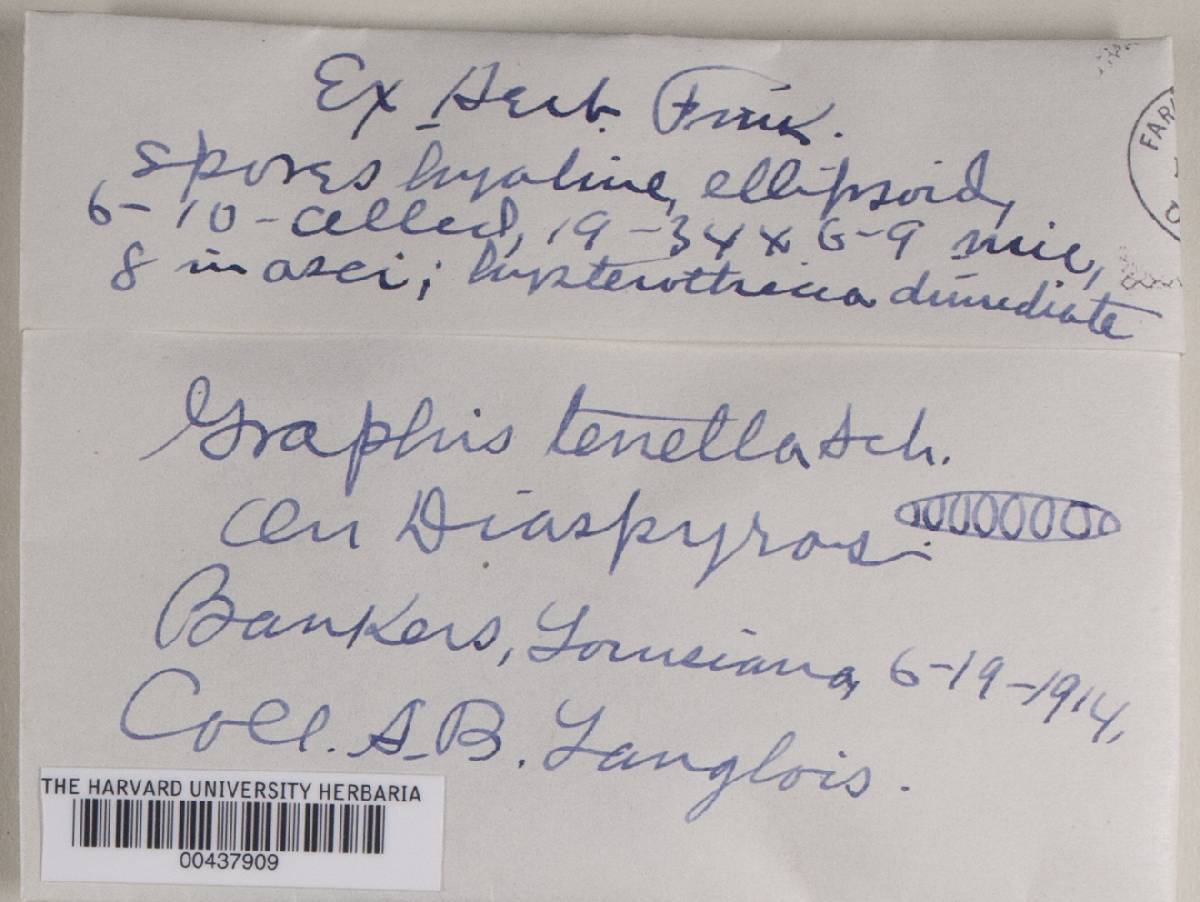 Ex Herb. Fink.
FAR
spores hyaline, ellipsoid,
6-10-celled, 19-34 x 6-9 mic,
8 in asci; hysterothecia dimidiate
Graphis tenella Ach.
On Diaspyros.
Bankers, Louisiana, 6-19-1914,
Coll. A.B. Langlois.
THE HARVARD UNIVERSITY HERBARIA
00437909